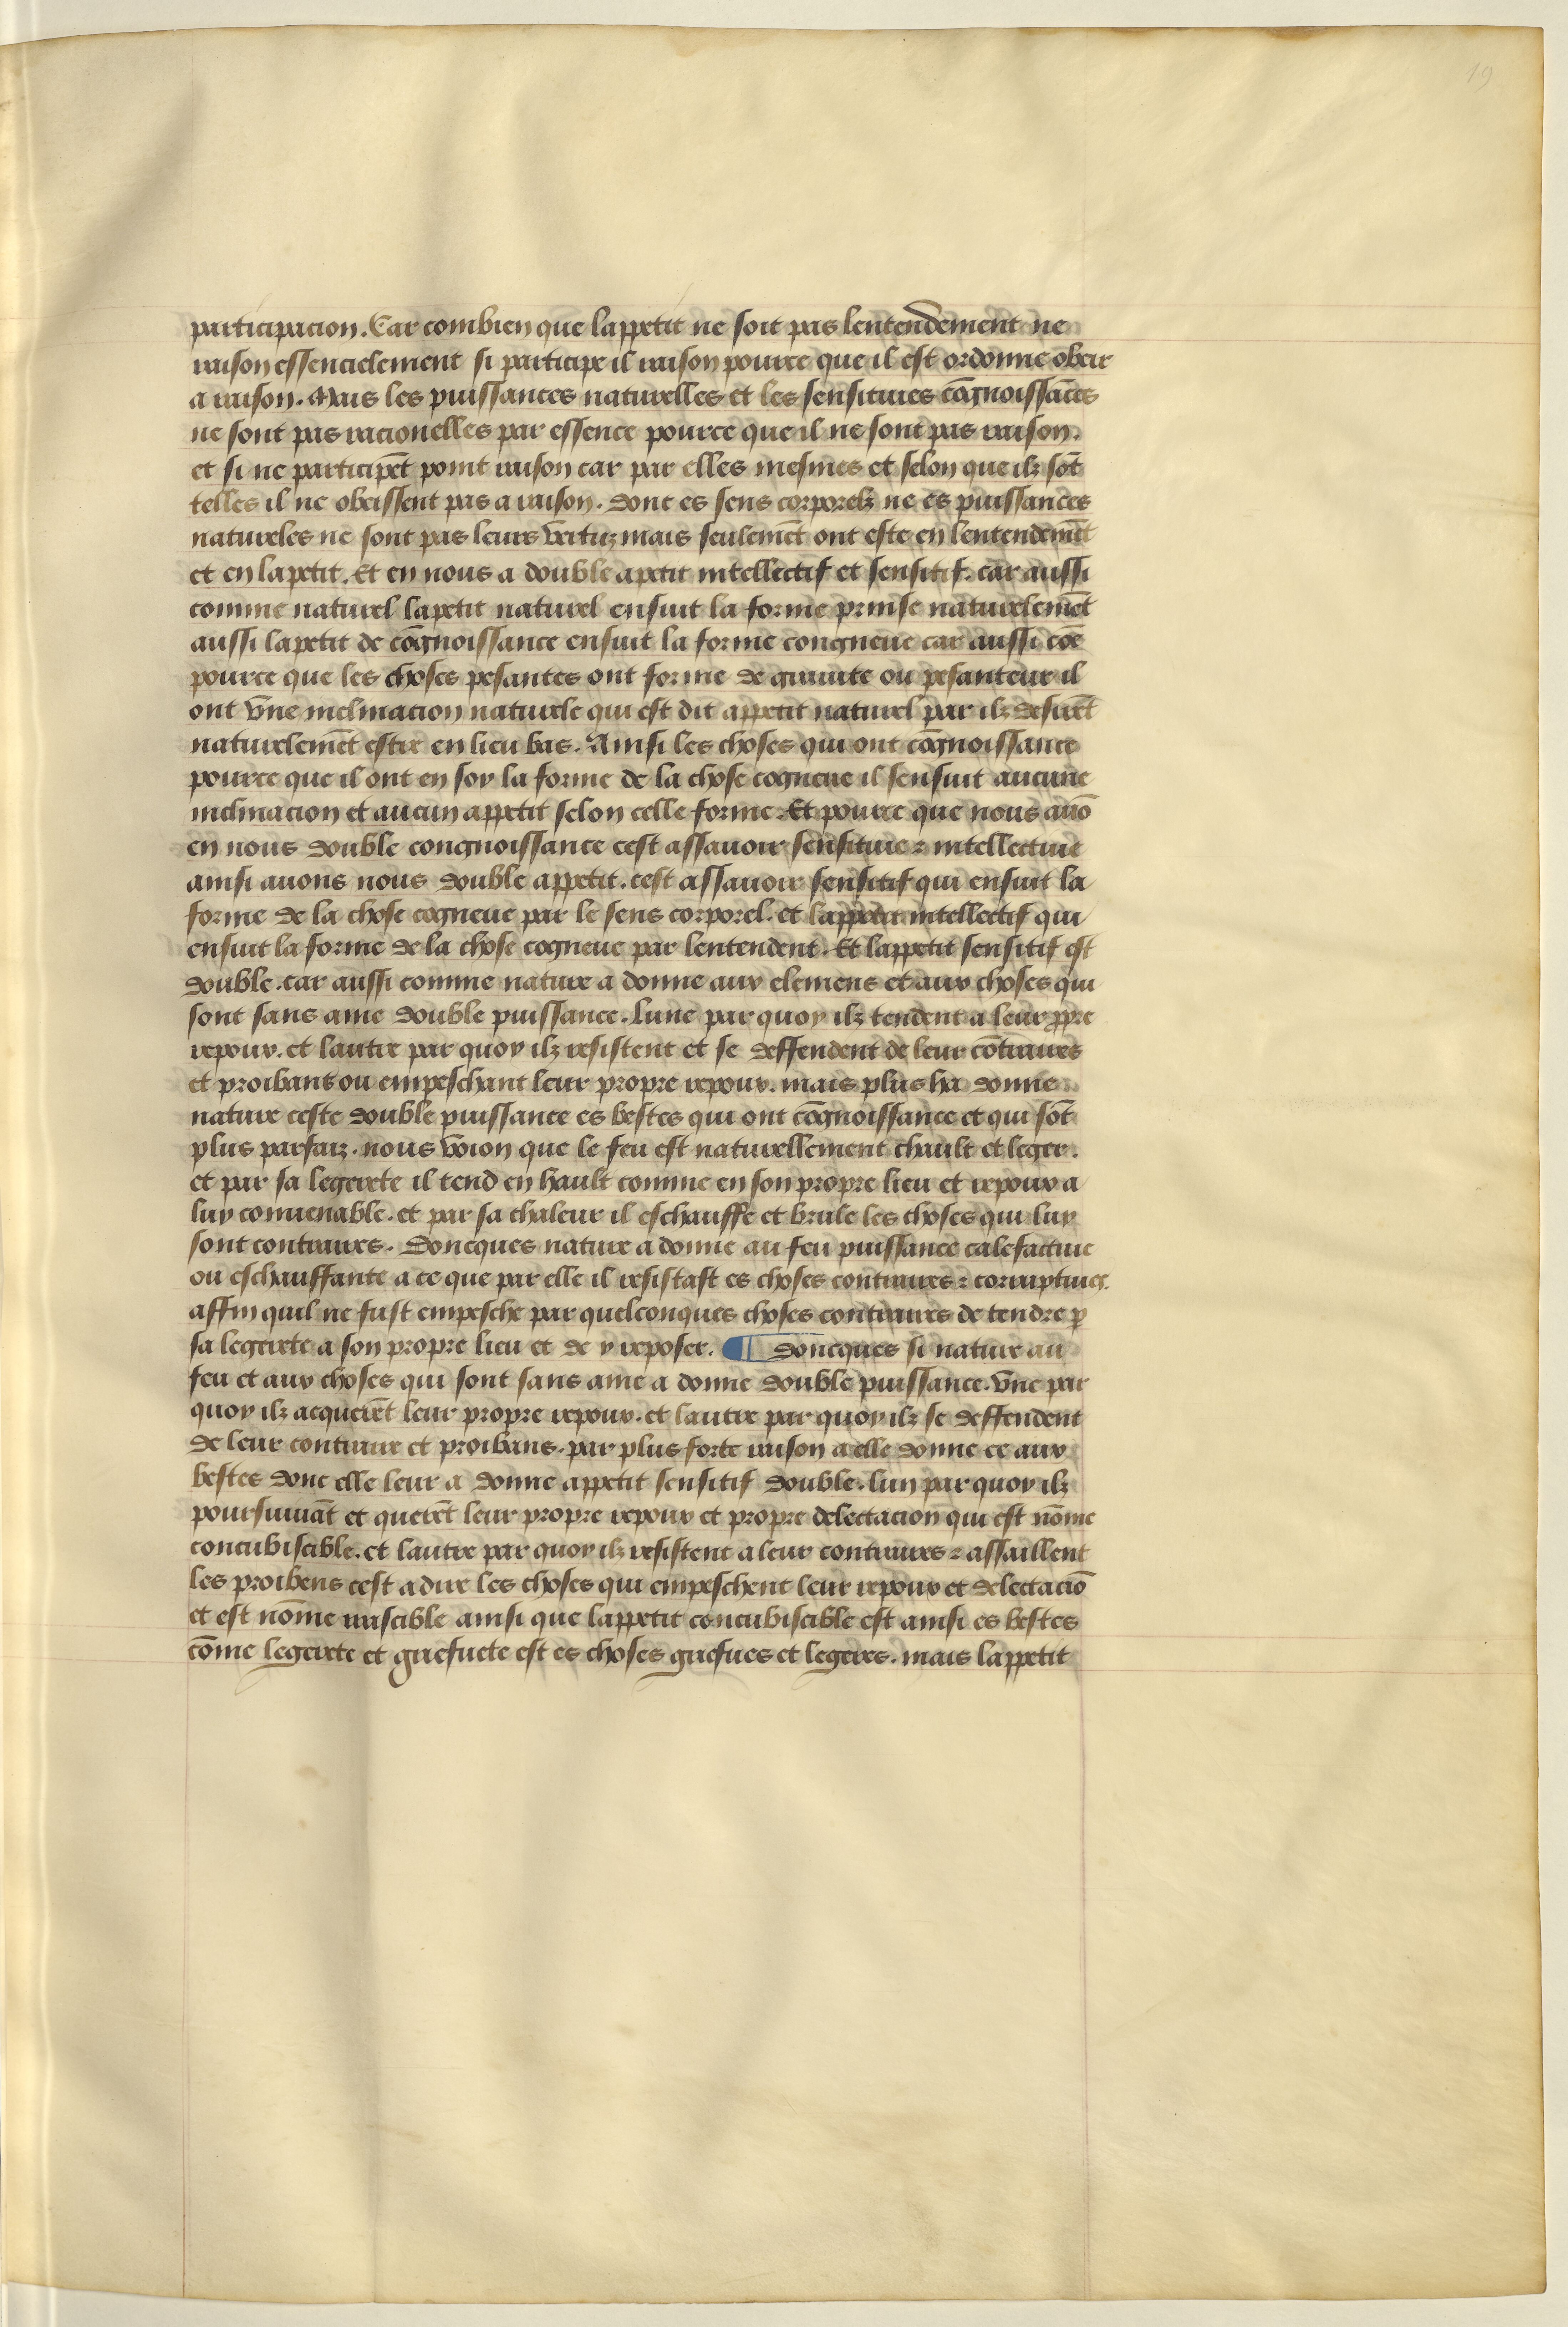 19
participacion. Car combien que lappetit ne soit pas lentendement ne
raison essencielement si participe il raison pource que il est ordonne obeir
a raison. Mais les puissances naturelles et les sensitiues cōgnoissāces
ne sont pas racionelles par essence pource que il ne sont pas raison.
et si ne participēt point raison car par elles mesmes et selon que ilz sōt
telles il ne obeissent pas a raison. donc es sens corporelz ne es puissances
natureles ne sont pas leurs vertuz mais seulemēt ont este en lentendemēt
et en lapetit. Et en nous a double apetit intellectif et sensitif. car aussi
comme naturel lapetit naturel ensuit la forme prinse naturelemēt
aussi lapetit de cōgnoissance ensuit la forme congneue car aussi cōe
pource que les choses pesantes ont forme de grauite ou pesanteur il
ont vne inclinacion naturele qui est dit appetit naturel par ilz desirēt
naturelemēt estre en lieu bas. Ainsi les choses qui ont cōgnoissance
pource que il ont en soy la forme de la chose cogneue il sensuit aucune
inclinacion et aucun appetit selon celle forme. Et pource que nous auō
en nous double congnoissance cest assauoir sensitiue ⁊ intellectiue
ainsi auons nous double appetit. cest assauoir sensitif qui ensuit la
forme de la chose cogneue par le sens corporel. et lappetit intellectif qui
ensuit la forme de la chose cogneue par lentendent. Et lappetit sensitif est
double. car aussi comme nature a donne aux elemens et aux choses qui
sont sans ame double puissance. Lune par quoy ilz tendent a leur ꝓpre
repoux. et lautre par quoy ilz resistent et se deffendent de leur cōtraires
et proibans ou empeschant leur propre repoux. mais plus ha donne
nature ceste double puissance es bestes qui ont cōgnoissance et qui sōt
plus parfaiz. nous voion que le feu est naturellement chault et leger.
et par sa legerete il tend en hault comme en son propre lieu et repoux a
luy conuenable. et par sa chaleur il eschauffe et brule les choses qui luy
sont contraires. Doncques nature a donne au feu puissance calefactiue
ou eschauffante a ce que par elle il resistast es choses contraires ⁊ corruptiues.
affin quil ne fust empesche par quelconques choses contraires de tendre ꝑ
sa legerete a son propre lieu et de y reposer. ¶ doncques si nature au
feu et aux choses qui sont sans ame a donne double puissance. vne par
quoy ilz acquerēt leur propre repoux. et lautre par quoy ilz se deffendent
de leur contraire et proibans. par plus forte raison a elle donne ce aux
bestes donc elle leur a donne appetit sensitif double. lun par quoy ilz
poursuiuāt et querēt leur propre repoux et propre delectacion qui est nōme
concubiscible. et lautre par quoy ilz resistent a leur contraires ⁊ assaillent
les proibens cest a dire les choses qui empeschent leur repoux et delectaciō
et est nōme irascible ainsi que lappetit concubiscible est ainsi es bestes
cōme legerete et griefuete est es choses griefues et legeres. mais lappetit